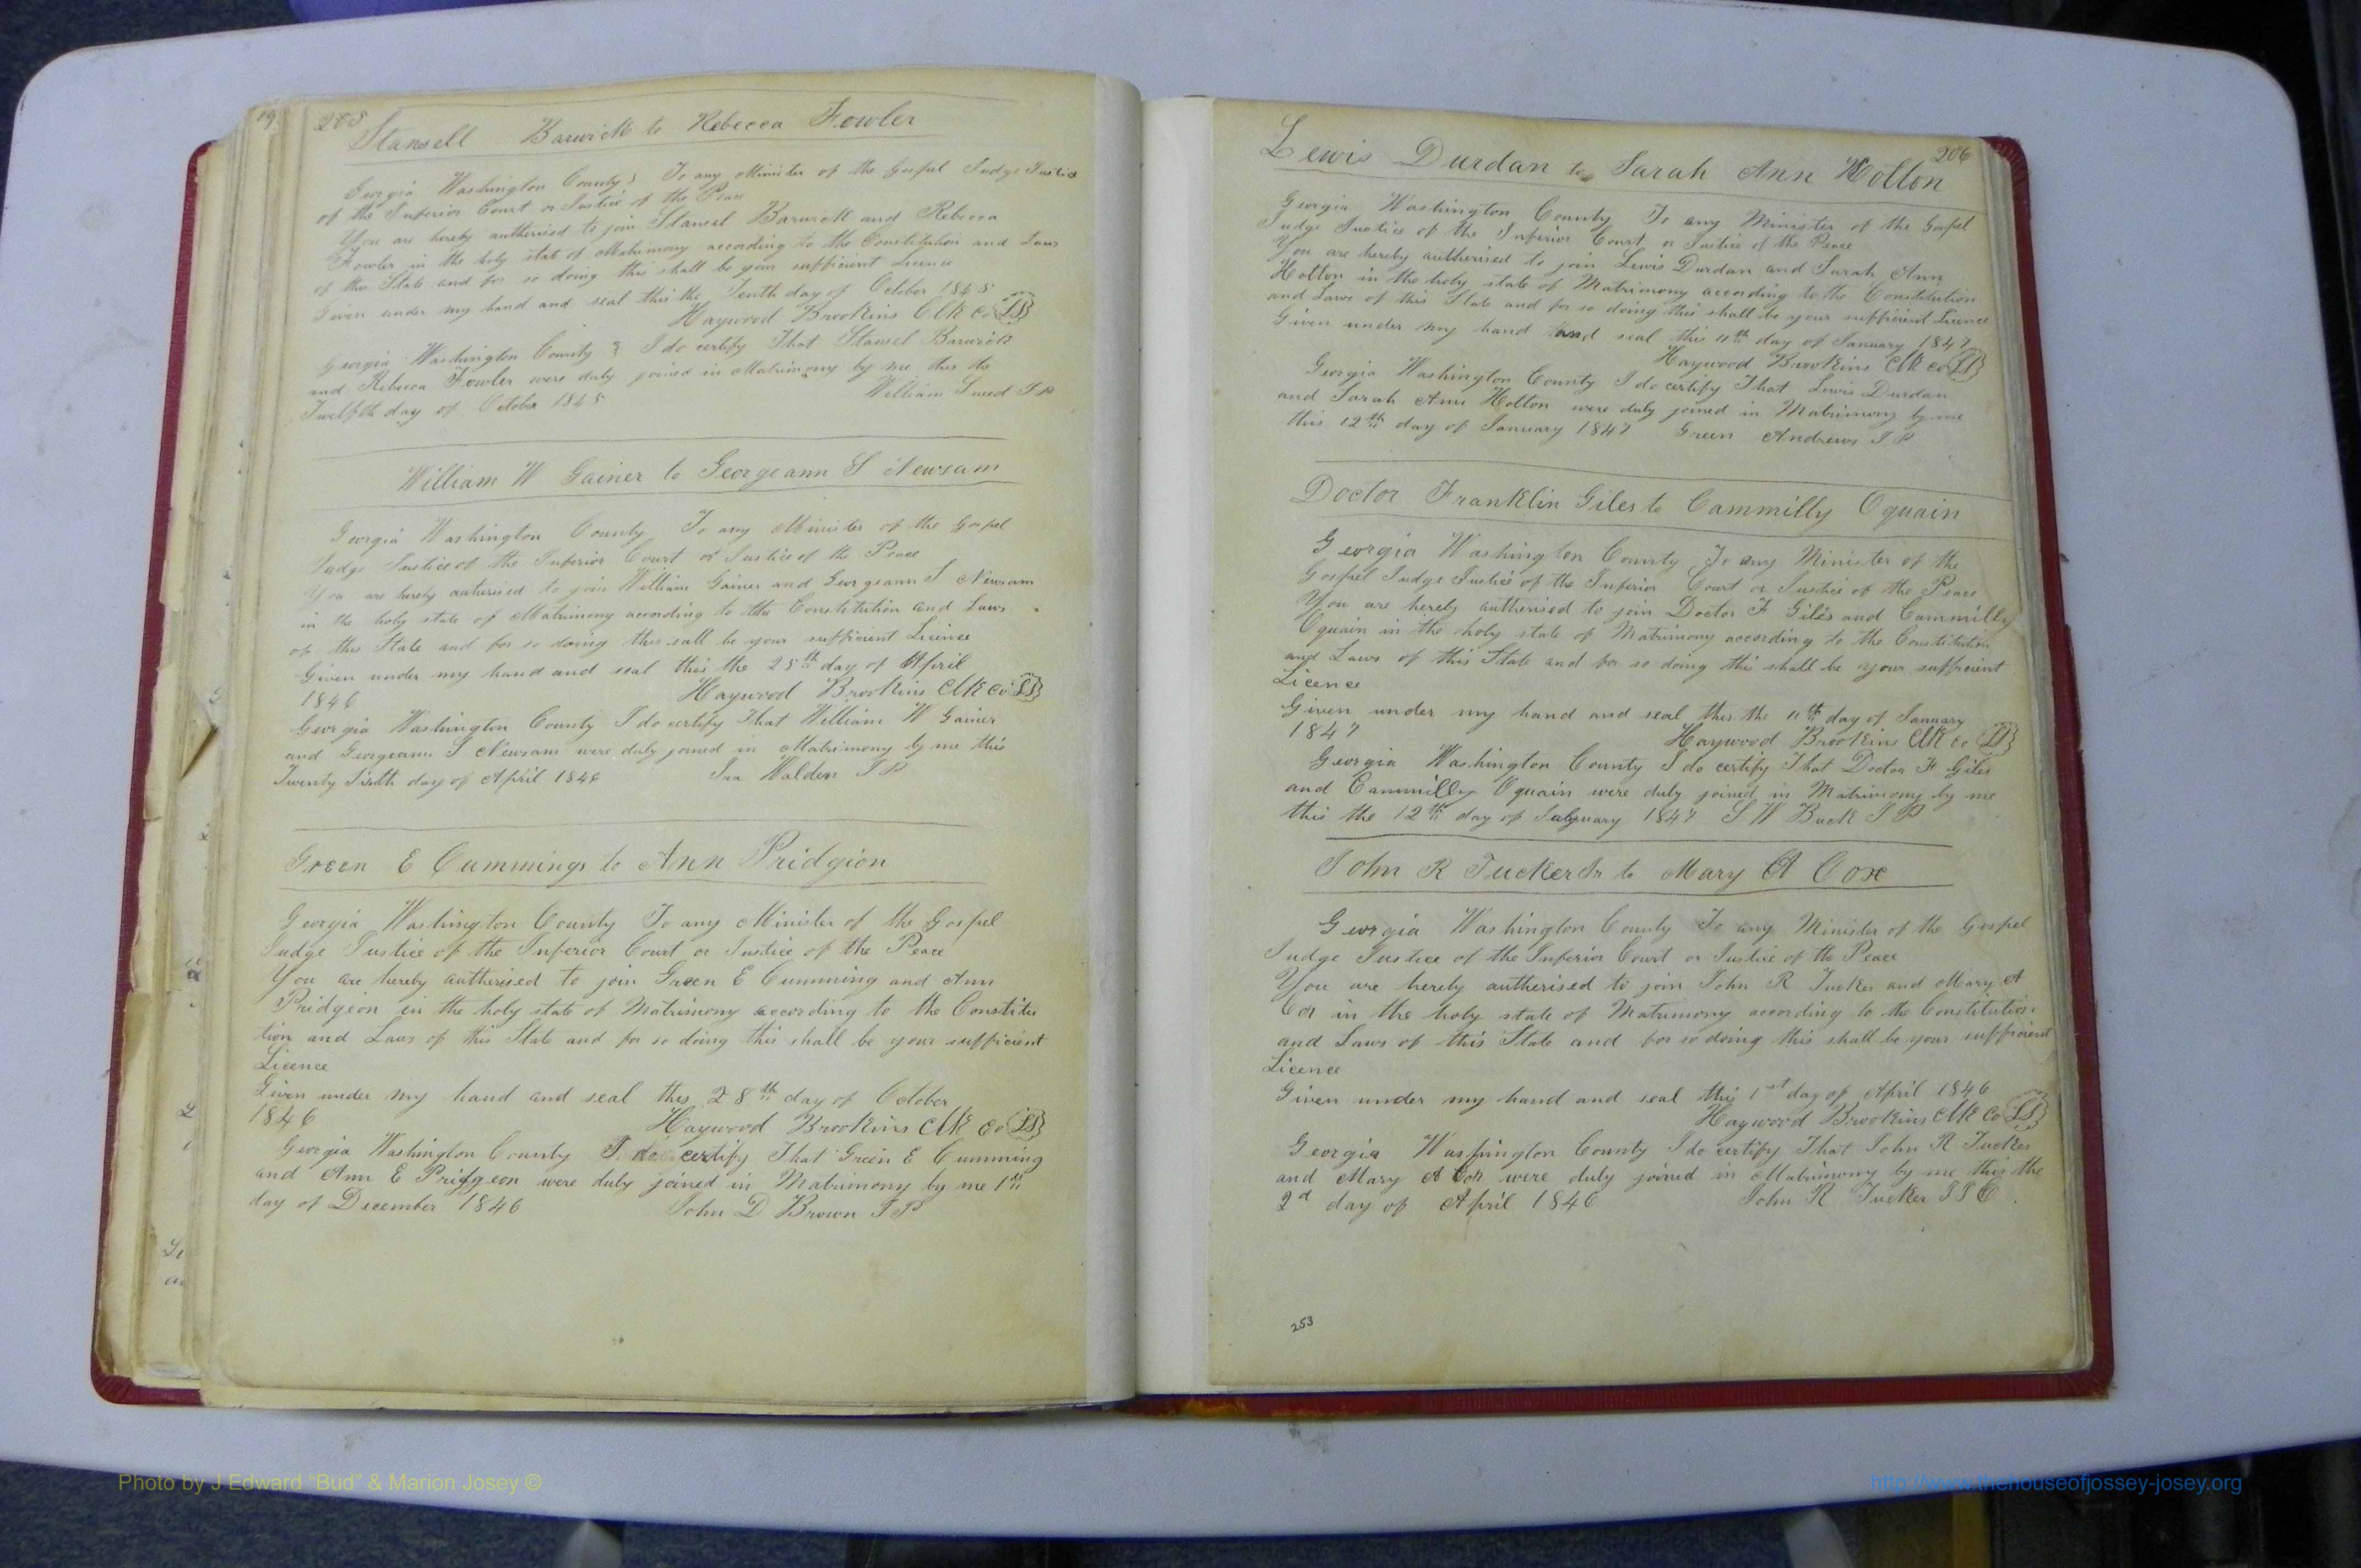 205
Stansell Barwick to Rebecca Fowler
Georgia Washington County } To any Minister of the Gospel Judge Justice
of the Inferior Court or Justice of the Peace
You are hereby autherised to join Stansel Barwick and Rebecca
Fowler in the holy state of Matrimony according to the Constitution and Laws
of this State and for so doing this shall be your sufficient Licence
Given under my hand and seal this the Tenth day of October 1845
Haywood Brookins Clk co LS
Georgia Washington County } I do certify That Stansel Barwick
and Rebecca Fowler were duly joined in Matrimony by me this the
Twelfth day of October 1845 William Sneed J P
William W Gainer to Georgeann S Newsam
Georgia Washington County To any Minister of the Gospel
Judge Justice of the Inferior Court or Justice of the Peace
You are hereby autherised to join William Gainer and Georgeann S Newsam
in the holy state of Matrimony according to the Constitution and Laws
of this State and for so doing this sall be your sufficient Licence
Given under my hand and seal this the 25th day of April
1846 Haywood Brookins Clk co LS
Georgia Washington County I do certify That William W Gainer
and Georgeann S Newsam were duly joined in Matrimony by me this
Twenty Sixth day of April 1846 Ira Walden J P
Green E Cummings to Ann Pridgion
Georgia Washington County To any Minister of the Gospel
Judge Justice of the Inferior Court or Justice of the Peace
You are hereby autherised to join Green E Cumming and Ann
Pridgeon in the holy state of Matrimony according to the Constitu
tion and Laws of this State and for so doing this shall be your sufficient
Licence
Given under my hand and seal this 28th day of October
1846 Haywood Brookins Clk co LS
Georgia Washington County I do certify That Green E Cumming
and Ann E Pridgeon were duly joined in Matrimony by me 1th
day of December 1846 John D Brown J P
206
Lewis Durdan to Sarah Ann Holton
Georgia Washington County To any Minister of the Gospel
Judge Justice of the Inferior Court or Justice of the Peace
You are hereby autherised to join Lewis Durdan and Sarah Ann
Holton in the holy state of Matrimony according to the Constitution
and Laws of this State and for so doing this shall be your sufficient Licence
Given under my hand and seal this 11th day of January 1847
Haywood Brookins Clk co LS
Georgia Washington County I do certify That Lewis Durdan
and Sarah Ann Holton were duly joined in Matrimony by me
this 12th day of January 1847 Green Andrews J P
Doctor Franklin Giles to Cammilly Oquain
Georgia Washington County To any Minister of the
Gospel Judge Justice of the Inferior Court or Justice of the Peace
You are hereby autherised to join Doctor F Giles and Cammilly
Oquain in the holy state of Matrimony according to the Constitution
and Laws of this State and for so doing this shall be your sufficient
Licence
Given under my hand and seal this the 11th day of January
1847 Haywood Brookins Clk co LS
Georgia Washington County I do certify That Doctor F Giles
and Cammilly Oquain were duly joined in Matrimony by me
this the 12th day of 1847 S W Buck J P
John R Tucker Jr to Mary A Cox
Georgia Washington County To any Minister of the Gospel
Judge Justice of the Inferior Court or Justice of the Peace
You are hereby autherised to join John R Tucker and Mary A
Cox in the holy state of Matrimony according to the Constitution
and Laws of this State and for so doing this shall be your sufficient
Licence
Given under my hand and seal this 1st day of April 1846
Haywood Brookins Clk co LS
Georgia Washington County I do certify That John R Tucker
and Mary A Cox were duly joined in Matrimony by me this the
2d day of April 1846 John R Tucker J I C
253
Photo by J Edward “Bud” & Marion Josey ©
http://www.thehouseofjossey-josey.org